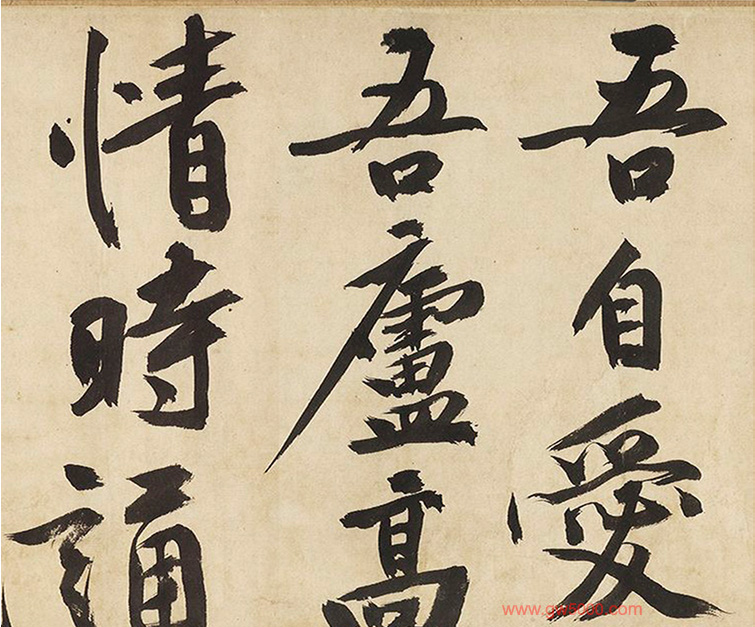 吾自愛
吾廬高
情時誦
www.gw8000.com